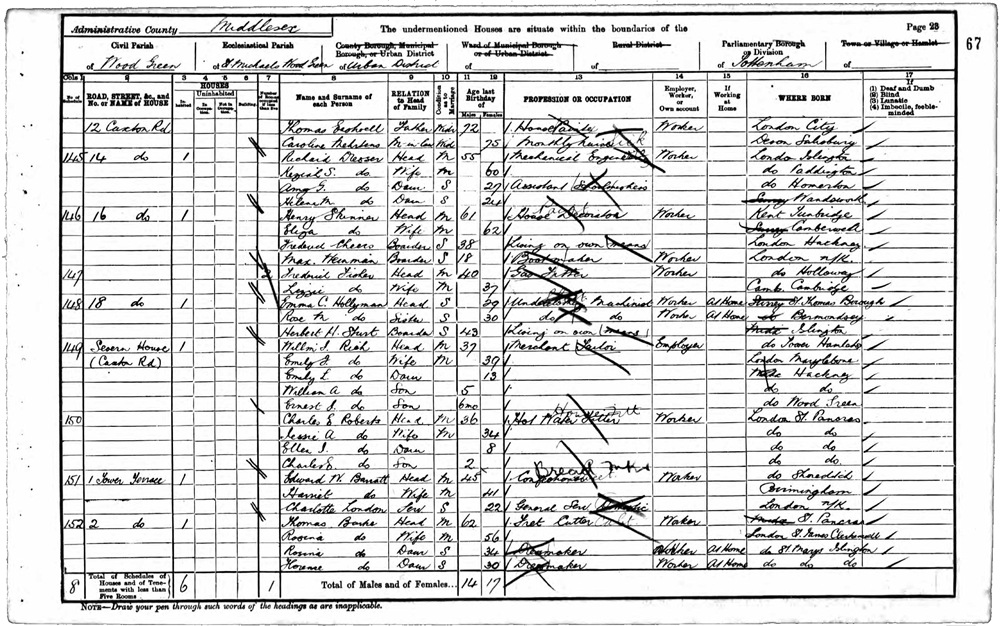 Administrative County Middlesex The undermentioned Houses are situate within the boundaries of the Page 23
67
Civil Parish Ecclesiastical Parish County Borough, Municipal Borough, or Urban District Ward of Municipal Borough or of Urban District Rural District Parliamentary Borough or Division Town or Village or Hamlet
of Wood Green of St Michaels Wood Green of Urban District of of of Tottenham of
Cols 1 2 3 4 5 6 7 8 9 10 11 12 13 14 15 16 17
No. of Schedule ROAD, STREET, &c., and No. or NAME of HOUSE HOUSES Inhabited In Occupation Not in Occupation Building Name and Surname of each Person RELATION to Head of Family Condition as to Marriage Age last Birthday of Males Females PROFESSION OR OCCUPATION Employer, Worker, or Own account If Working at Home WHERE BORN (1) Deaf and Dumb (2) Blind (3) Lunatic (4) Imbecile, feeble-minded
12 Caxton Rd Thomas Father Widr 72 House Painter Worker London City
Caroline Mehrtens M in law Wid 75 Monthly Nurse Devon
145 14 do 1 Richard Dresser Head M 55 Mechanical Engineer Worker London Islington
S. do Wife M 60 do Paddington
Amy G. do Daur S 27 Assistant do Homerton
Helena M do Daur S 24 Surrey Wandsworth
146 16 do 1 Henry Skinner Head M 61 House Decorator Worker Kent Tunbridge
Eliza do Wife M 62 Surrey Camberwell
Frederick Cheers Boarder S 38 Living on own means London Hackney
Max. Boarder S 18 Bootmaker Worker London n/K.
147 Frederick Fisher Head M 40 Gas Fitter Worker do Holloway
Lizzie do Wife M 37 Camb. Cambridge
148 18 do 1 Emma C. Hollyman Head S 29 Machinist Worker At Home Surrey St Thomas Borough
Rose M do Sister S 30 do do Worker At Home do Bermondsey
Herbert H. Boarder S 43 Living on own means Islington
149 Severn House 1 Willm J. Rich Head M 37 Merchant Tailor Employer do Tower Hamlets
(Caxton Rd) Emily do Wife M 39 London Marylebone
Emily E. do Daur 13 Hackney
William A do Son 5 do do
Ernest J. do Son 6mo do Wood Green
150 Charles E Roberts Head M 36 Hot Water Fitter Worker London St. Pancras
Jessie A do Wife M 34 do do
Ellen J. do Daur 8 do do
Charles E. do Son 2 do do
151 1 Tower Terrace 1 Edward W. Barratt Head M 45 Worker do Shoreditch
Harriet do Wife M 41 Birmingham
Charlotte London Serv S 22 General Serv Domestic London n/K.
152 2 do 1 Thomas Head M 62 Fret Cutter Worker St. Pancras
Rosina do Wife M 56 London St James Clerkenwell
Rosina do Daur S 34 Dressmaker Worker At Home do St Marys Islington
Florence do Daur S 30 Dressmaker Worker At Home do do
8 Total of Schedules of Houses and of Tenements with less than Five Rooms 6 1 Total of Males and of Females... 14 17
NOTE—Draw your pen through such words of the headings as are inapplicable.